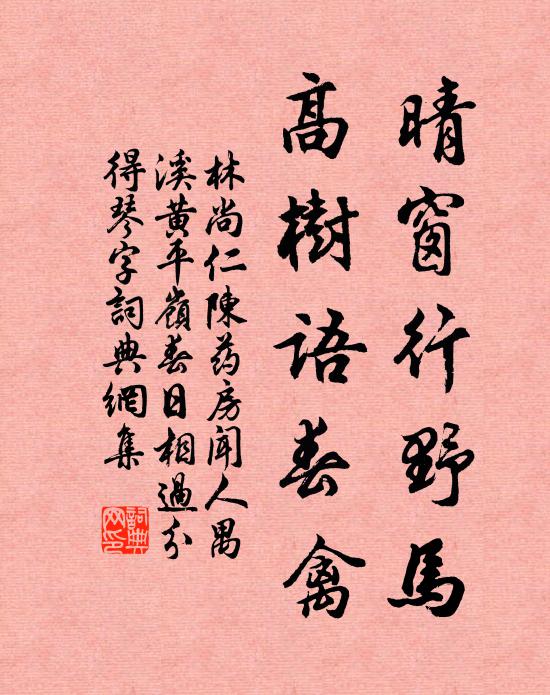 晴窗行野馬
高樹語春禽
林尚仁陳药房聞人禺
溪黄平嶺春日相過分
得琴字詞典網集
詞典网印